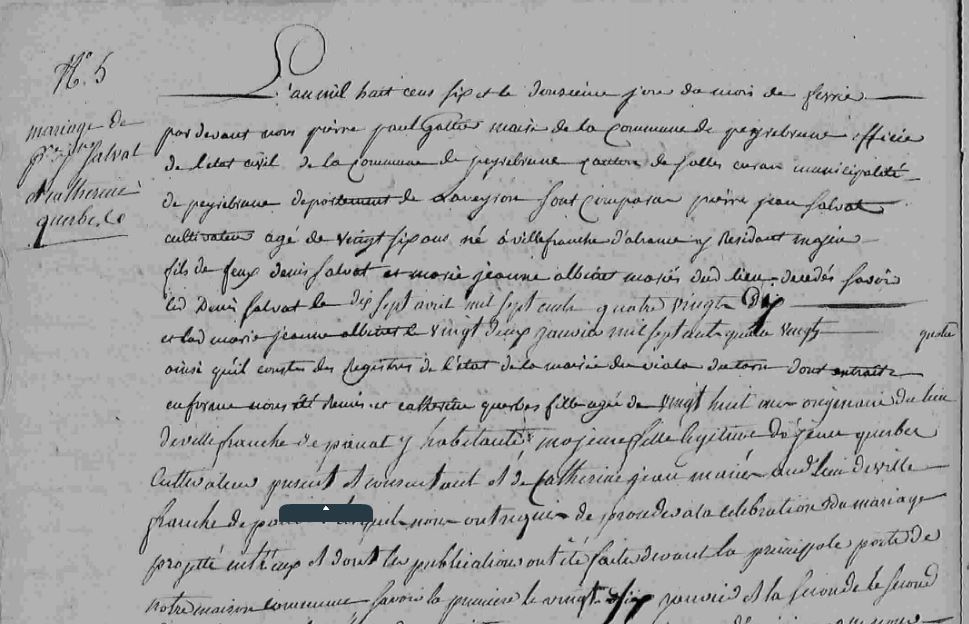 N.o 5
mariage de
pre jean salvat
et catherine
querbes
L'an mil huit cens six et le douzieme jour du mois de fevrie
par devant nous pierre paul maire de la Commune de peyrebrune officie
de letat civil de la Commune de peyrebrune canton de salles curan municipalité
de peyrebrune departement de Laveyron sont comparu pierre jean salvat
cultivateur agé de vingt six ans né à villefranche y Residant majeur
fils de feux denis salvat et marie jeanne albinet mariés dud. lieu decedés savoir
led Denis salvat le dix sept avril mil sept cents quatre vingts Dix
et lad marie jeanne albinet le vingt deux janvier mil sept cents quatre vingts quatre
ainsi qu'il constes des Registres de l'état de la mairie du viala du tarn dont extraits
en forme nous été remis et catherine querbes fille agé de vingt huit ans originaire du lieu
de villefranche de panat y habitante majeure fille legitime de jean querbes
Cultivateur présent et consentant et de Catherine jean mariés aud. lieu de ville
franche de nous ont requis de proceder a la celebration du mariage
projetté entr'eux et dont les publications ont été faites devant la principale porte de
notre maison commune savoir la premiere le vingt six janvier et la seconde le second